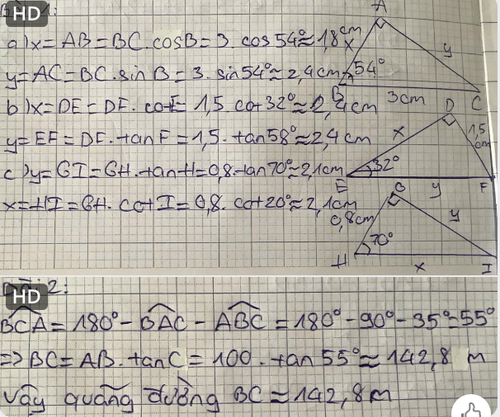 HD
a) x = AB = BC. cosB = 3. cos 54° ≈ 1,8 cm
y = AC = BC. sin B = 3. sin 54° ≈ 2,4 cm
b) x = DE = DF. cotE = 1,5 cot 32° ≈ 2,4 cm
y = EF = DF. tan F = 1,5. tan 58° ≈ 2,4 cm
c) y = GI = GH. tan H = 0,8. tan 70° ≈ 2,1 cm
x = HI = GH. cot I = 0,8. cot 20° ≈ 2,1 cm
A
x
y
54°
B
3 cm
C
D
x
1,5 cm
32°
E
y
F
G
0,8 cm
y
70°
H
x
I
HD
2:
BCA = 180° - BAC - ABC = 180° - 90° - 35° = 55°
=> BC = AB. tan C = 100. tan 55° ≈ 142,8 m
vậy quãng đường BC ≈ 142,8 m